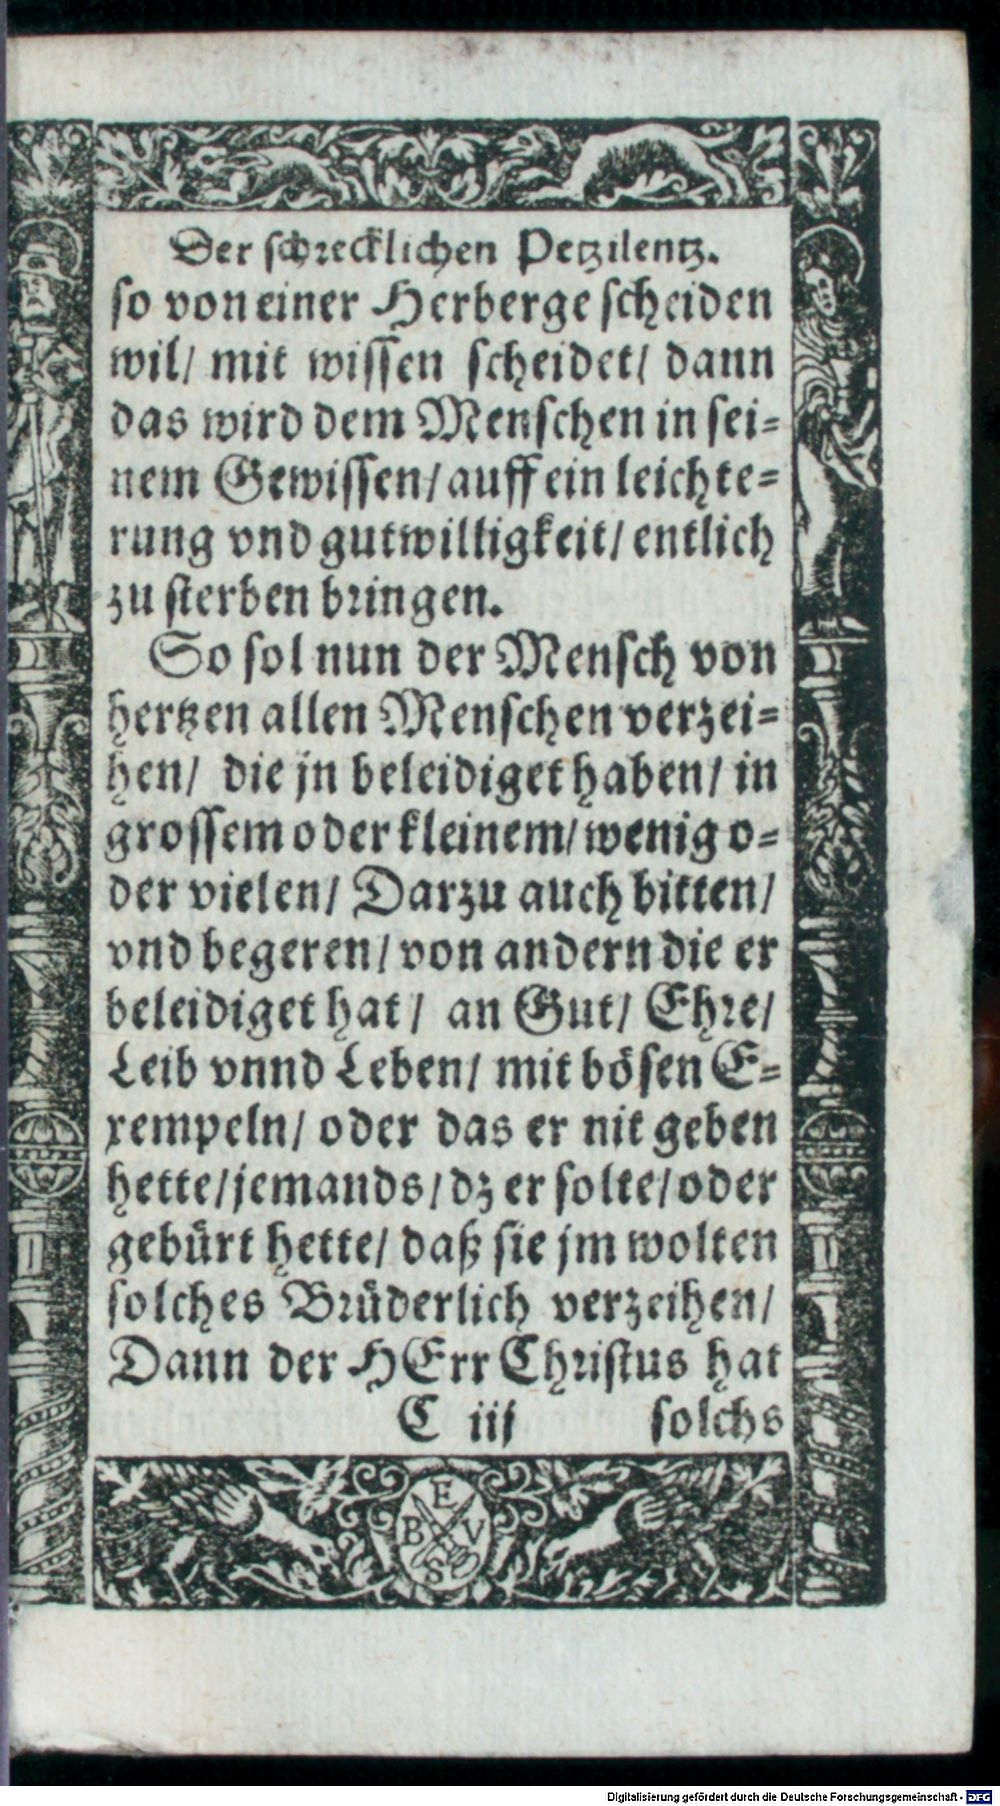 Der schrecklichen Petzilentz.
so von einer Herberge scheiden
wil/ mit wissen scheidet/ dann
das wird dem Menschen in sei=
nem Gewissen/ auff ein leichte=
rung vnd gutwilligkeit/ entlich
zu sterben bringen.
So sol nun der Mensch von
hertzen allen Menschen verzei=
hen/ die jn beleidiget haben/ in
grossem oder kleinem/ wenig o=
der vielen/ Darzu auch bitten/
vnd begeren/ von andern die er
beleidiget hat/ an Gut/ Ehre/
Leib vnnd Leben/ mit bösen E=
xempeln/ oder das er nit geben
hette/ jemands/ dz er solte/ oder
gebürt hette/ daß sie jm wolten
solches Brüderlich verzeihen/
Dann der HErr Christus hat
C iij solchs
E
B V
S
Digitalisierung gefördert durch die Deutsche Forschungsgemeinschaft - DFG